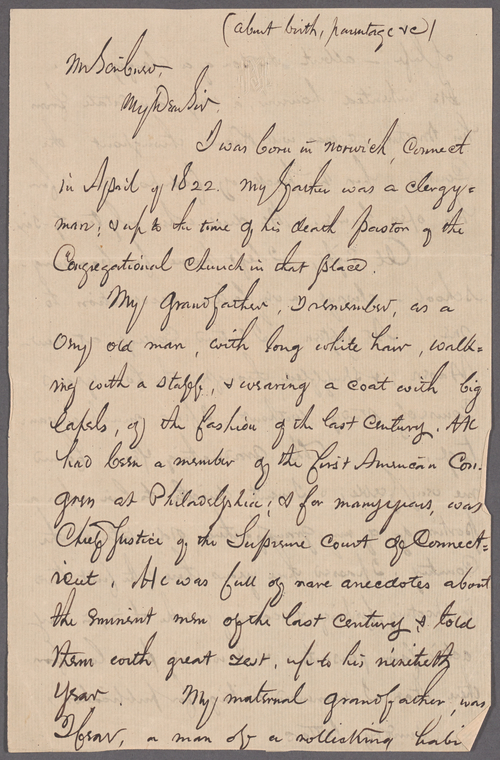 (about birth, parentage &c)
Mr Scribner,
My Dear Sir,
I was born in Norwich, Connect
in April of 1822. My father was a clergy=
man; & up to the time of his death pastor of the
Congregational Church in that place.
My Grandfather, I remember, as a
old man, with long white hair, walk=
ing with a staff, & wearing a coat with big
lapels, of the fashion of the last century. He
had been a member of the first American Con-
gress at Philadelphia; & for many years, was
Chief Justice of the Supreme Court of Connect=
icut. He was full of rare anecdotes about
the eminent men of the last century & told
them with great zest, up to his ninetieth
year. My maternal grandfather, was
I fear, a man of a rollicking habi